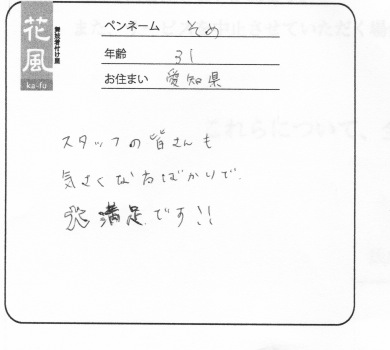 花風
舞妓着付け屋
ka-fu
ペンネーム そめ
年齢 31
お住まい 愛知県
スタッフの皆さんも
気さくな方ばかりで、
大満足です!!
これらについて、